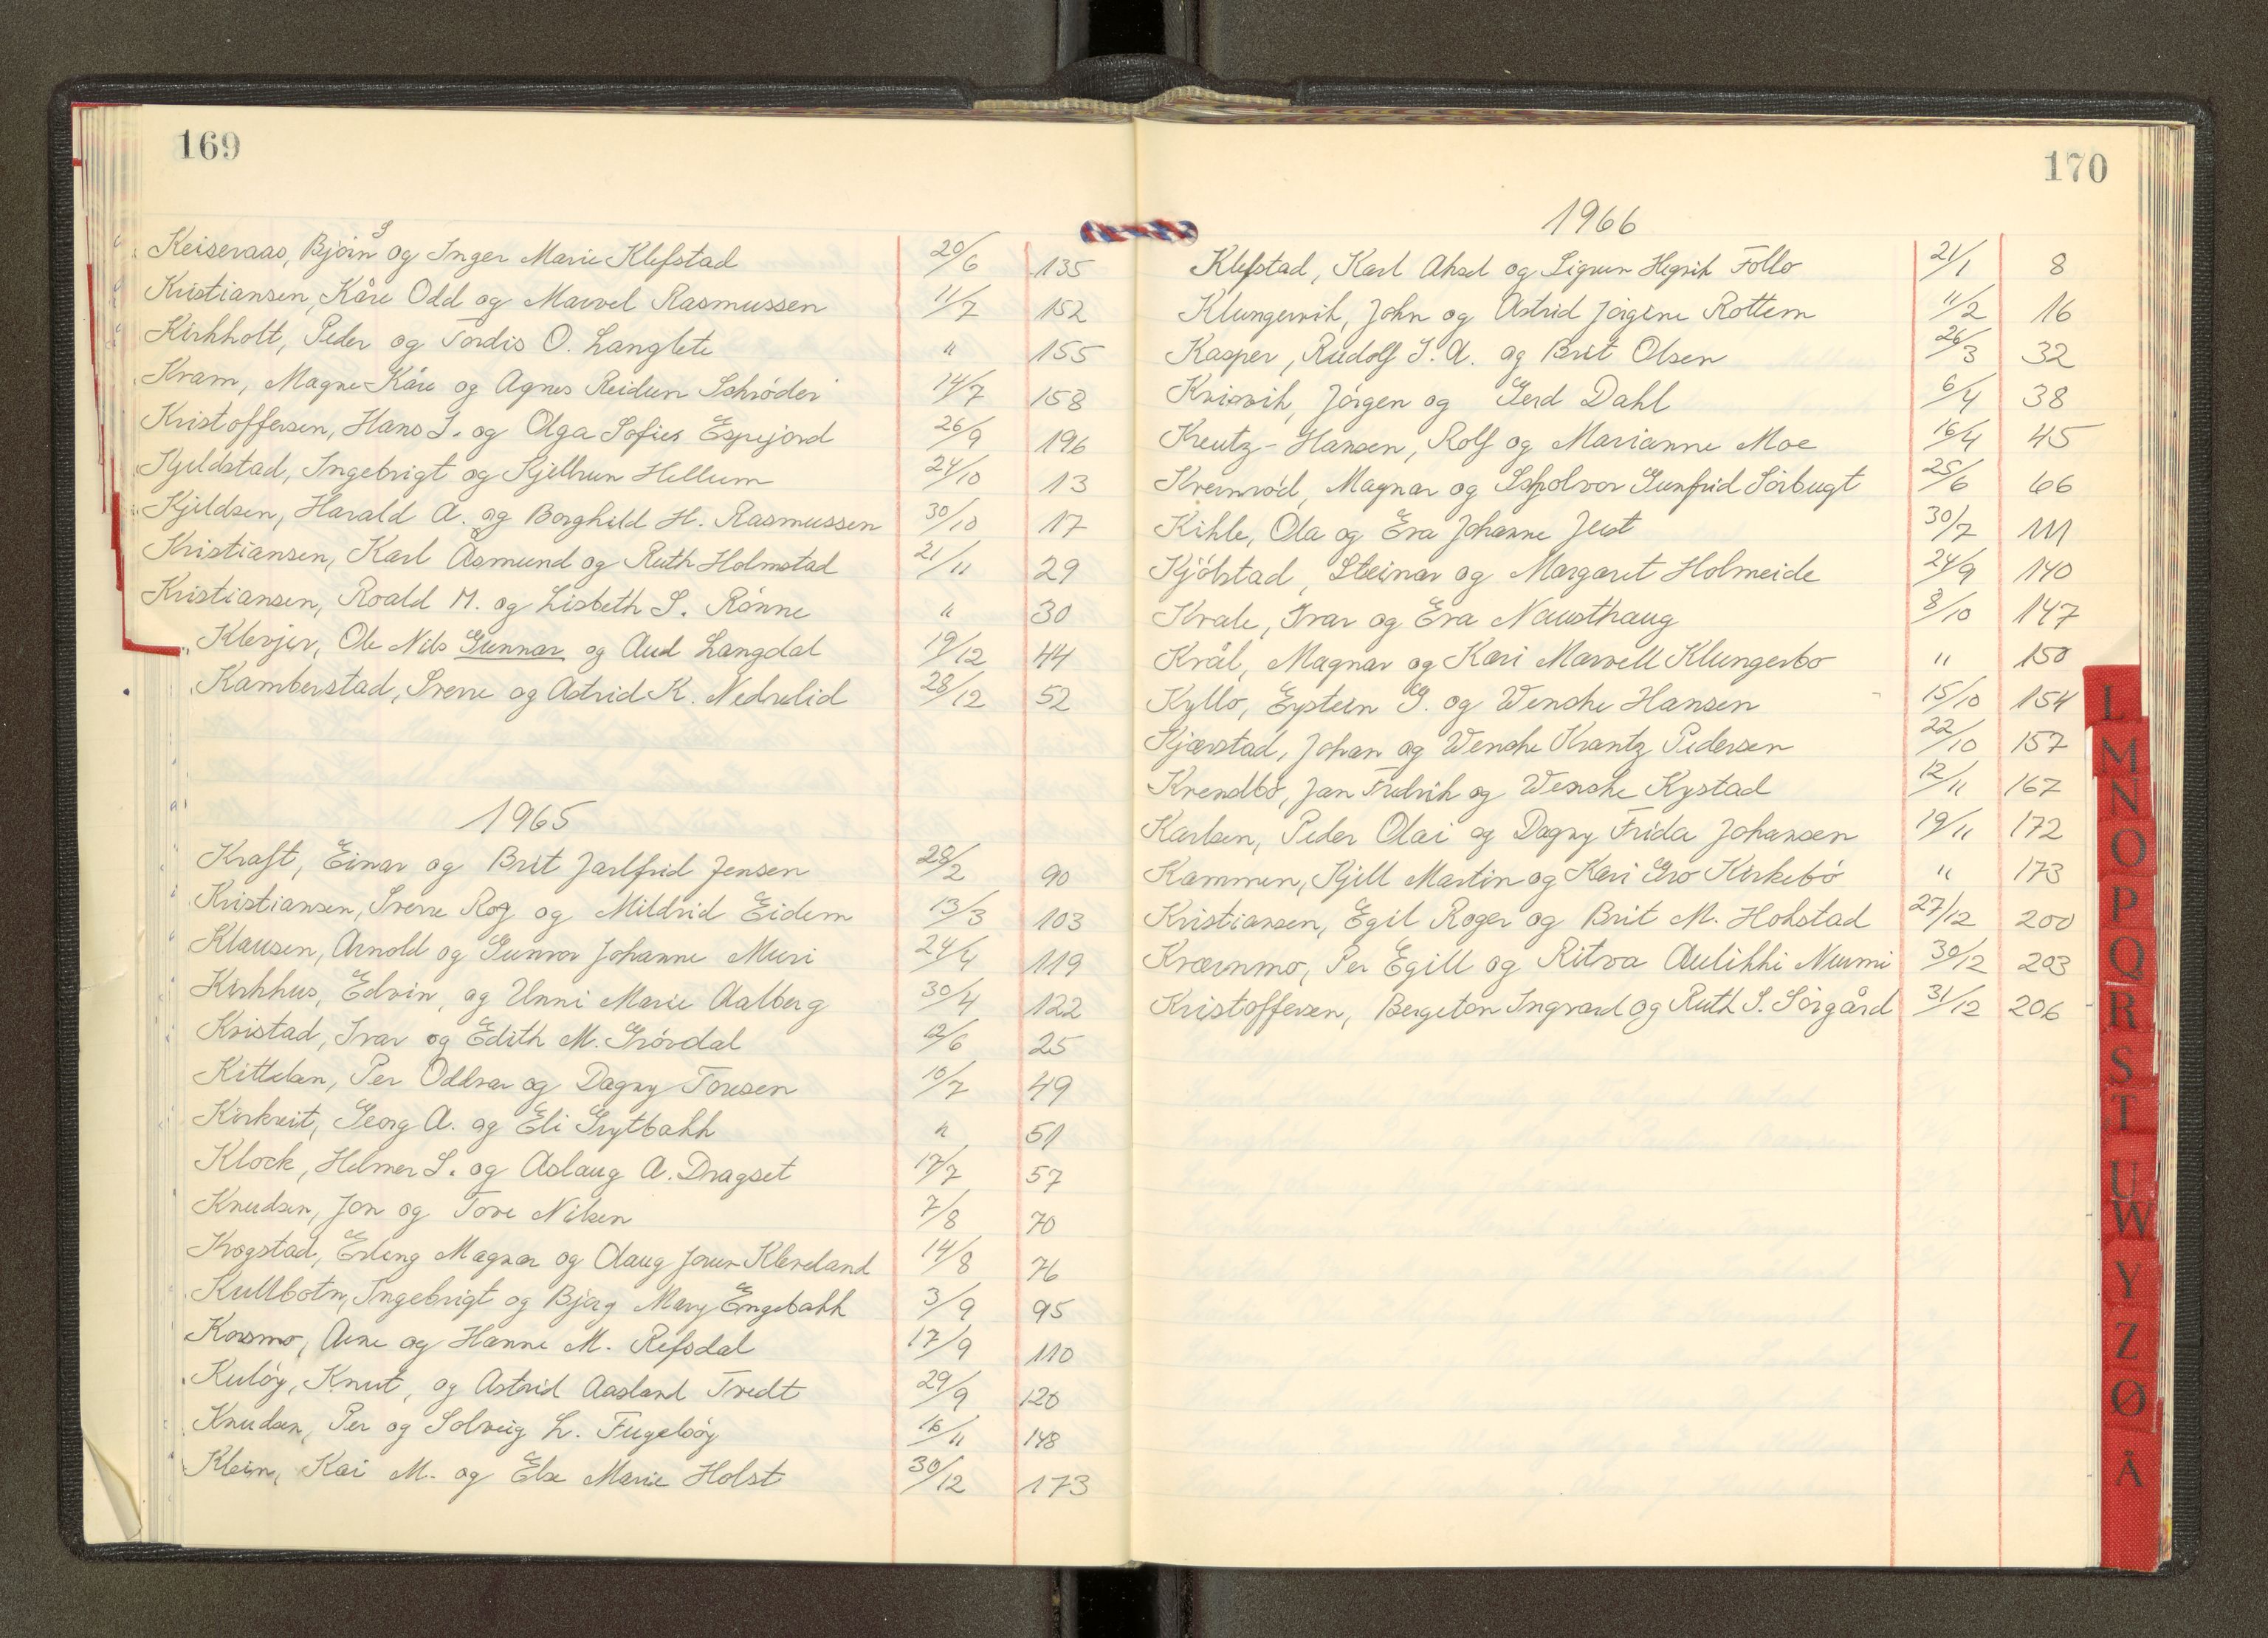 169
Keiseraas, Bjørn S og Inger Marie Klefstad 20/6 135
Kristiansen, Kåre Odd og Marvel Rasmussen 11/7 152
Kirkholt, Peder og Tordis O. Langlete " 155
Kram, Magne Kåre og Agnes Reidun Schrøder 14/7 158
Kristoffersen, Hans J. og Olga Sofies Espejord 26/9 196
Kjeldstad, Ingebrigt og Kjellrun Hellum 24/10 13
Kjeldsen, Harald A. og Borghild H. Rasmussen 30/10 17
Kristiansen, Karl Åsmund og Ruth Holmstad 21/11 29
Kristiansen, Roald M. og Lisbeth S. Rønne " 30
Klevjer, Ole Nils Gunnar og Aud Langdal 19/12 44
Kamberstad, Sverre og Astrid K. Nedrelid 28/12 52
1965
Kraft, Einar og Brit Jarlfrid Jensen 28/2 90
Kristiansen, Sverre Roy og Mildrid Eidem 13/3 103
Klausen, Arnold og Gunvor Johanne Muri 24/4 119
Kirkhus, Edvin, og Unni Marie Aalberg 30/4 122
Kristad, Ivar og Edith M. Grøvdal 12/6 25
Kittelsen, Per Oddvar og Dagny Toresen 10/7 49
Kirkreit, Georg A. og Eli Grytbakk " 51
Klock, Helmer S. og Aslaug A. Dragset 17/7 57
Knudsen, Jon og Tove Nilsen 7/8 70
Krogstad, Erling Magnar og Olaug Jorun Kleveland 14/8 76
Kullbotn, Ingebrigt og Bjørg Mary Engebakk 3/9 95
Korsmo, Arne og Hanne M. Refsdal 17/9 110
Kuløy, Knut, og Astrid Aasland Tredt 29/9 120
Knudsen, Per og Solveig L. Fugelsøy 16/11 148
Klein, Kai M. og Else Marie Holst 30/12 173
170
1966
Klefstad, Karl Aksel og Sigrun Hegrik Follo 21/1 8
Klungervik, John og Astrid Jørgine Rottem 11/2 16
Kasper, Rudolf J. A. og Brit Olsen 26/3 32
Krisvik, Jørgen og Gerd Dahl 6/4 38
Kreutz-Hansen, Rolf og Marianne Moe 16/4 45
Kremrød, Magnar og Gunfrid Sørbugt 25/6 66
Kihle, Ola og Eva Johanne Just 30/7 111
Kjølstad, Steinar og Margaret Holmeide 24/9 140
Krale, Ivar og Eva Nausthaug 8/10 147
Krål, Magnar og Kari Marvell Klungerbo " 150
Kyllo, Eystein G. og Wenche Hansen 15/10 154
Kjærstad, Johan og Wenche Krantz Pedersen 22/10 157
Krendbø, Jan Fredrik og Wenche Kystad 12/11 167
Karlsen, Peder Olai og Dagny Frida Johansen 19/11 172
Kammen, Kjell Martin og Kari Gro Kirkebø " 173
Kristiansen, Egil Roger og Brit M. Hokstad 27/12 200
Kværnmo, Per Egill og Ritva Aulikki Nurmi 30/12 203
Kristoffersen, Bergeton Ingvard og Ruth S. Sørgård 31/12 206
L
M
N
O
P
Q
R
S
T
U
W
Y
Z
Ø
Å